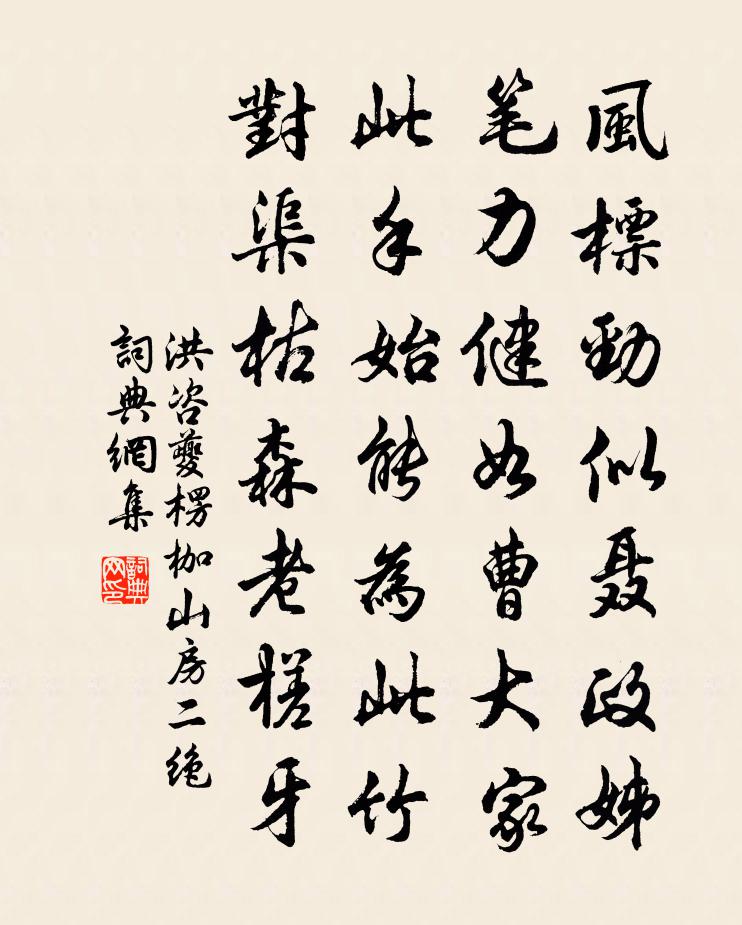 風標勁似聂政姊
笔力健如曹大家
此手始能為此竹
對渠枯森老槎牙
洪咨夔楞枷山房二绝
詞典網集
詞典网印